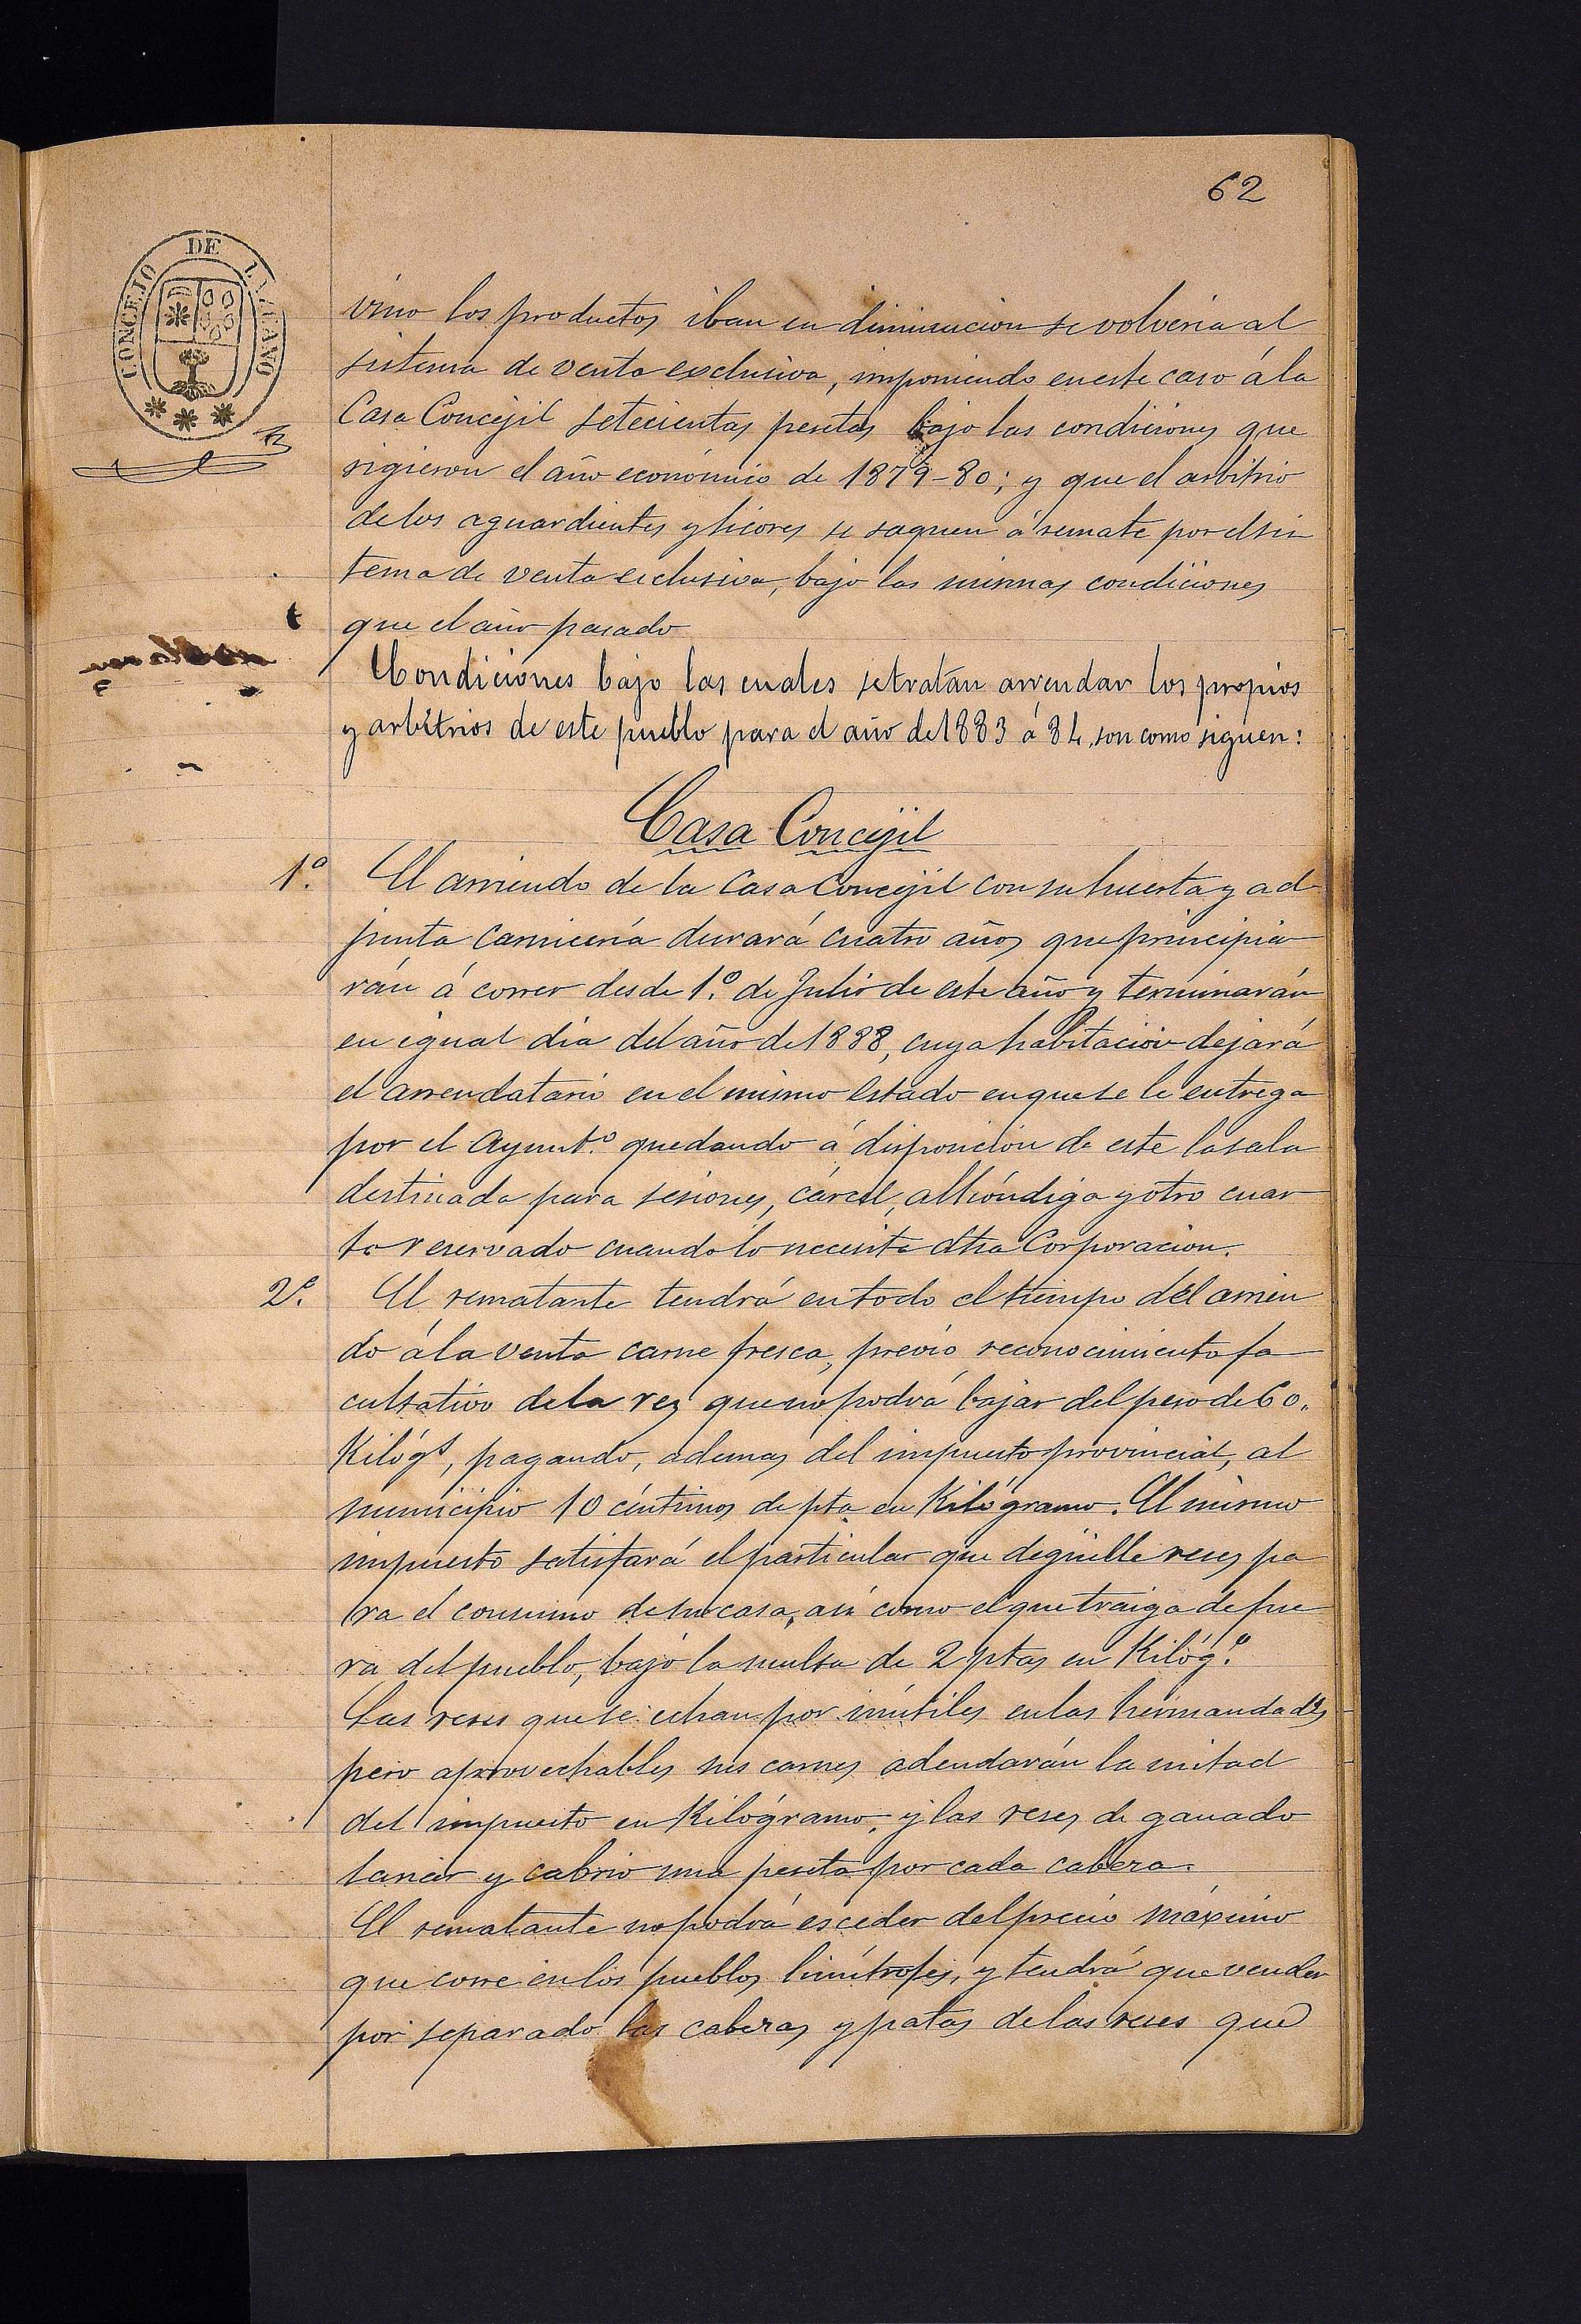 62
CONCEJO DE LAZCANO
vino los productos iban en diminucion se volveria al
sistema de venta exclusiva, imponiendo en este caso á la
Casa Concejil setecientas pesetas bajo las condiciones que
rigieron el año económico de 1879-80; y que el arbitrio
de los aguardientes y licores se saquen á remate por el sis
tema de venta exclusiva, bajo las mismas condiciones
que el año pasado
Condiciones bajo las cuales se tratan arrendar los propios
y arbitrios de este pueblo para el año de 1883 á 84, son como siguen:
Casa Concejil
1.ª El arriendo de la Casa Concejil con su huerta y ad
junta carnicería durará cuatro años que principia
rán á correr desde 1.º de Julio de este año y terminarán
en igual dia del año de 1888, cuya habitación dejará
el arrendatario en el mismo estado en que se le entrega
por el Ayunt.º quedando á disposición de este la sala
destinada para sesiones, cárcel, alhóndiga y otro cuar
to reservado cuando lo necesite dha Corporacion.
2.ª El rematante tendrá en todo el tiempo del arrien
do á la venta carne fresca, previo reconocimiento fa
cultativo de la rez que no podrá bajar del peso de 60.
Kilógs, pagando, ademas del impuesto provincial, al
municipio 10 céntimos de pta en Kilógramo. El mismo
impuesto satisfará el particular que degüelle reses pa
ra el consumo de su casa, asi como el que traiga de fue
ra del pueblo, bajo la multa de 2 ptas en Kilóg.º
Las reses que se echan por inútiles en las hermandades
pero aprovechables sus carnes adeudarán la mitad
del impuesto en Kilógramo, y las reses de ganado
lanar y cabrio una peseta por cada cabeza.
El rematante no podrá esceder del precio máximo
que corre en los pueblos limítrofes, y tendrá que vender
por separado las cabezas y patas de las reses que